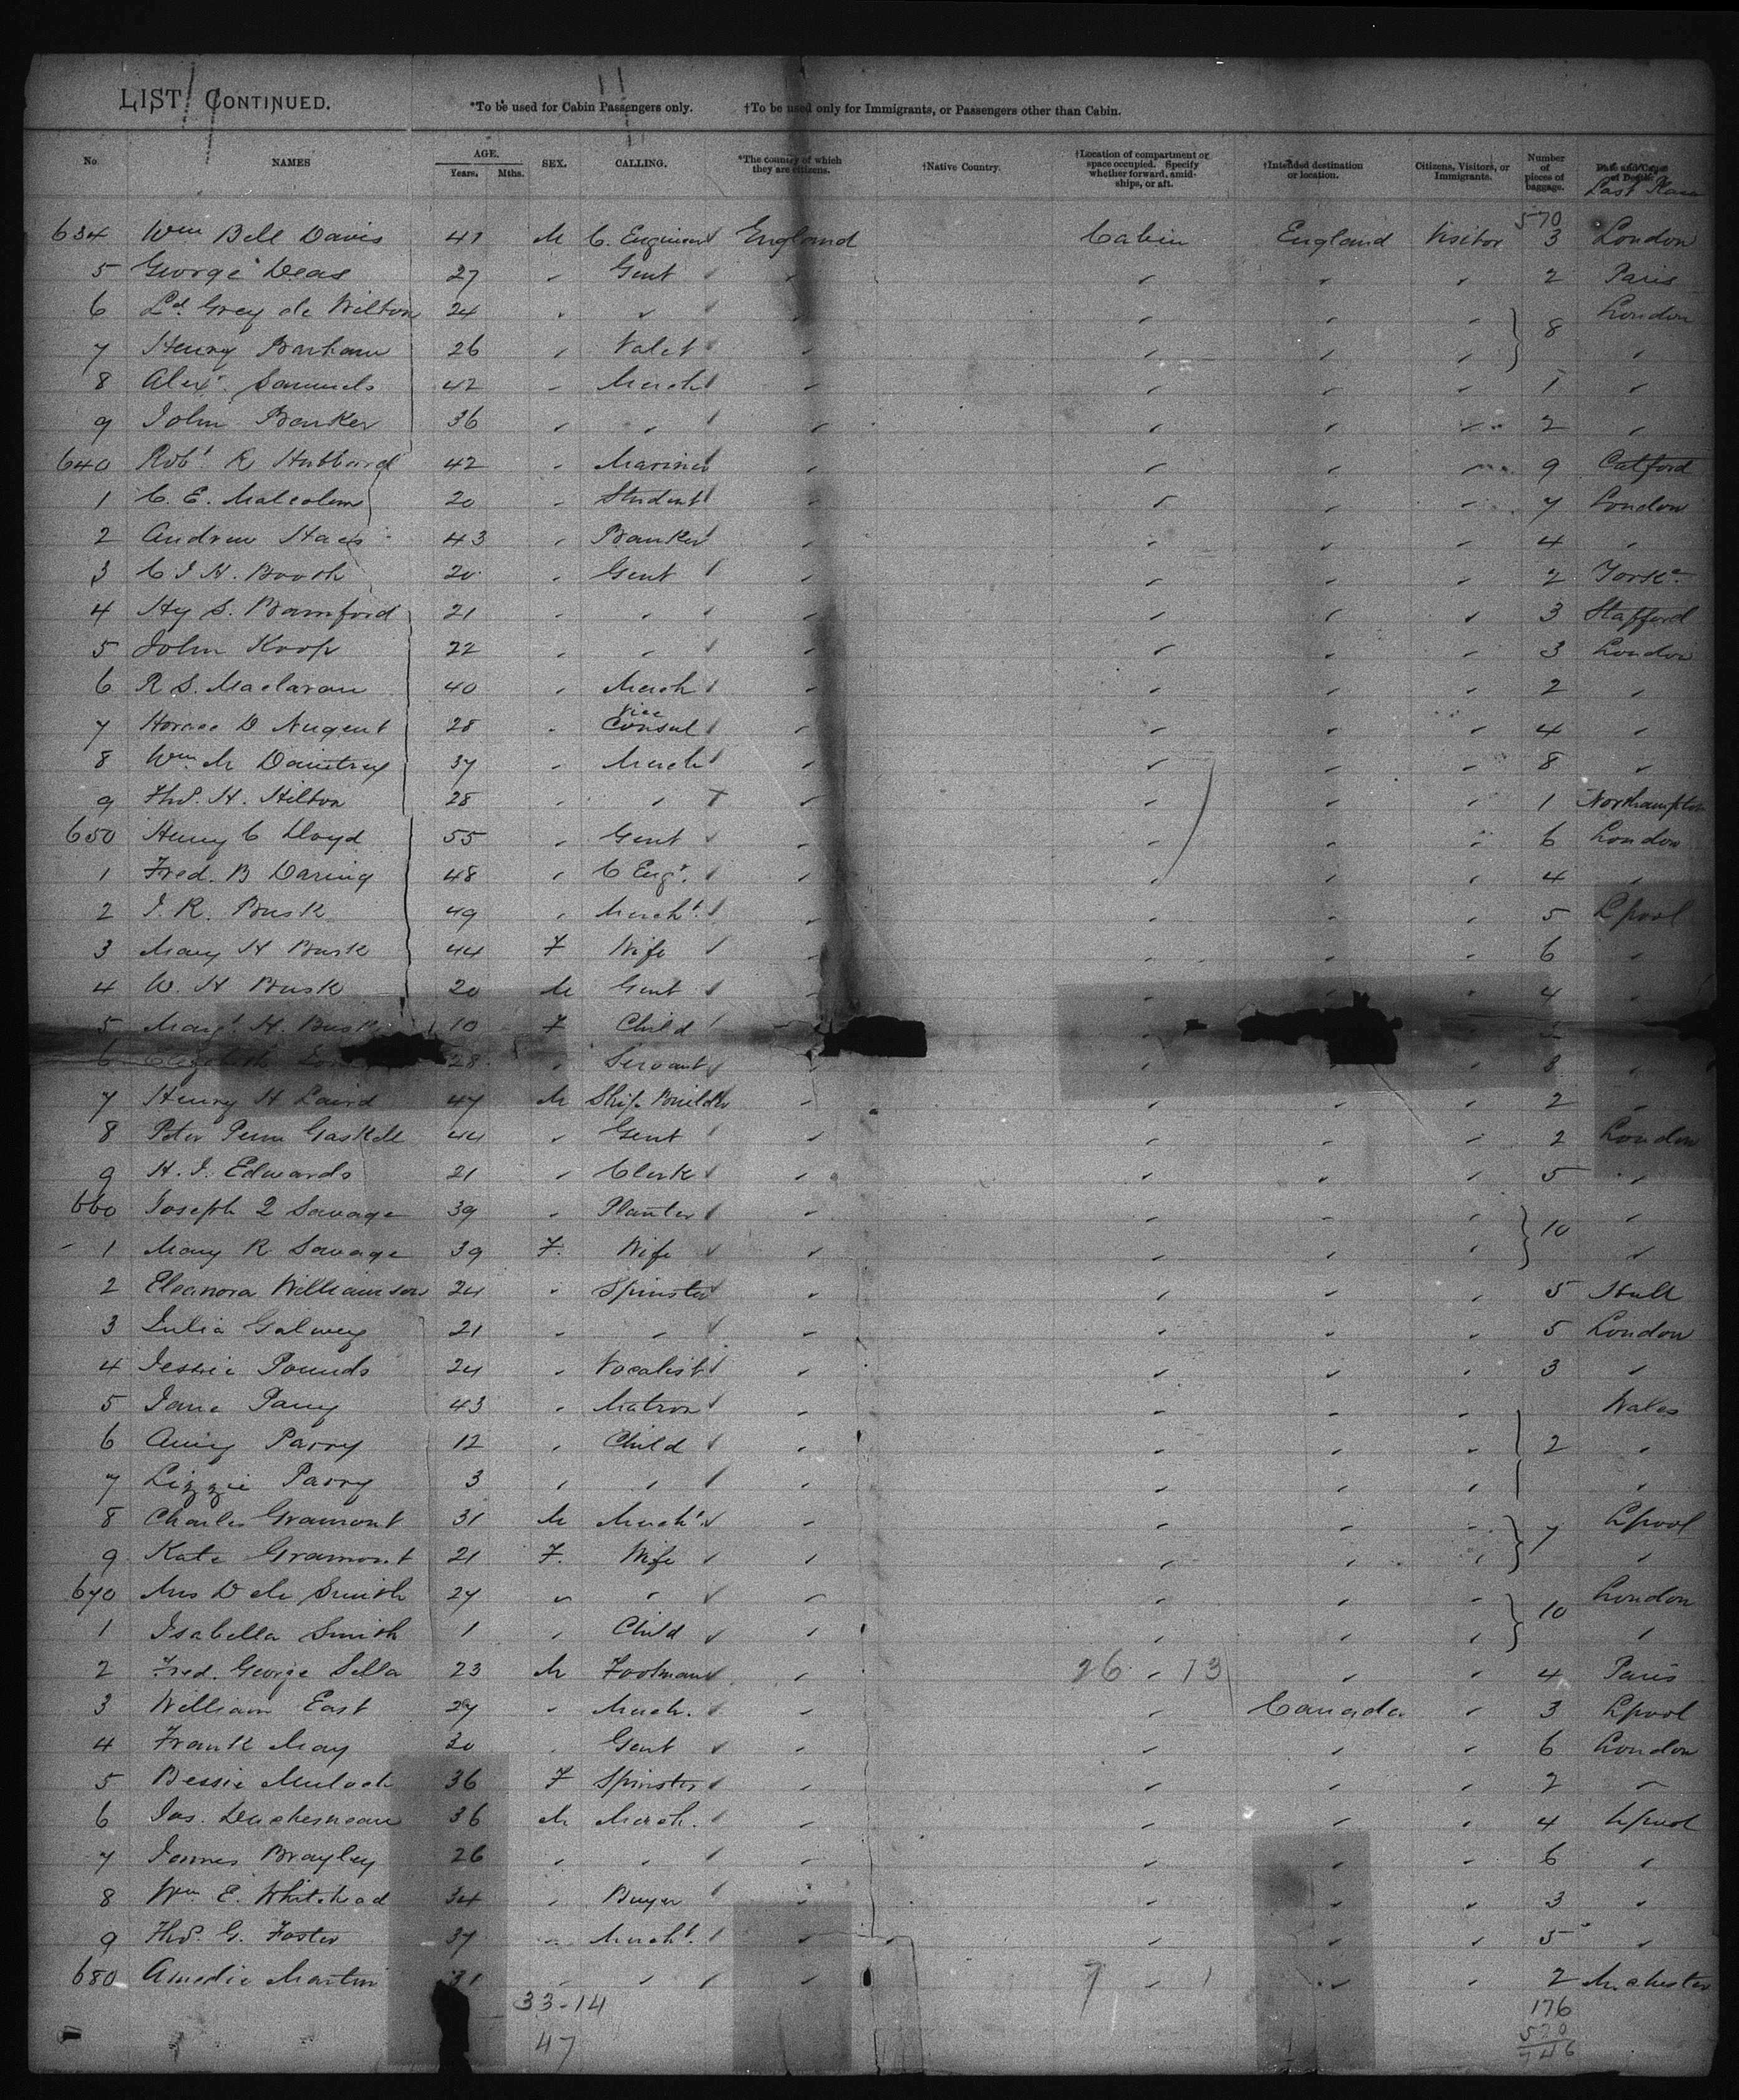 LIST CONTINUED.
*To be used for Cabin Passengers only. †To be used only for Immigrants, or Passengers other than Cabin.
No NAMES AGE. Years. Mths. SEX. CALLING. *The country of which they are citizens. †Native Country. †Location of compartment or space occupied. Specify whether forward, amidships, or aft. †Intended destination or location. Citizens, Visitors, or Immigrants. Number of pieces of baggage. Date and Cause of Death.
Last Place
570
634 Wm Bell Davis 41 M C. Engineer England Cabin England Visitor 3 London
5 George Deas 27 " Gent " " " " 2 Paris
6 Ld. Grey de Wilton 24 " " " " " " London
7 Henry Barham 26 " Valet " " " " 8 "
8 Alexr. Samuels 42 " Mercht " " " " 1 "
9 John Banker 36 " " " " " " 2 "
640 Robt. R Hubbard 42 " Mariner " " " " 9 Catford
1 C. E. Malcolm 20 " Student " " " " 7 London
2 Andrew Haes 43 " Banker " " " " 4 "
3 C J H. Booth 20 " Gent " " " " 2 Yorke
4 Hy S. Bamford 21 " " " " " " 3 Stafford
5 John Koop 22 " " " " " " 3 London
6 R S. Maclaran 40 " Merch " " " " 2 "
7 Horace D Nugent 28 " Vice Consul " " " " 4 "
8 Wm. M Daintrey 37 " Merch " " " " 8 "
9 Thos. H. Hilton 28 " " " " " " 1 Northampton
650 Henry C Lloyd 55 " Gent " " " " 6 London
1 Fred. B Daring 48 " C Engr. " " " " 4 "
2 J. R. Busk 49 " Mercht. " " " " 5 Lpool
3 Mary H Busk 44 F Wife " " " " 6 "
4 W. H Busk 20 M Gent " " " " 4 "
5 Margt. H. Busk 10 F Child " "
6 28 " Servant " " " 8 "
7 Henry H Laird 47 M Ship Builder " " " " 2 "
8 Peter Penn Gaskell 44 " Gent " " " " 2 London
9 H. J. Edwards 21 " Clerk " " " " 5 "
660 Joseph 2 Savage 39 " Planter " " " " 10 "
1 Mary R Savage 39 F. Wife " " " " "
2 Eleanora Williamson 24 " Spinster " " " " 5 Hull
3 Julia Galwey 21 " " " " " " 5 London
4 Jessie Pounds 24 " Vocalist " " " " 3 "
5 Jane Parry 43 " Matron " " " " Wales
6 Amy Parry 12 " Child " " " " 2 "
7 Lizzie Parry 3 " " " " " " "
8 Charles Gramont 31 M Mercht. " " " " 7 Lpool
9 Kate Gramont 21 F. Wife " " " " "
670 Mrs D de Smith 27 " " " " " " 10 London
1 Isabella Smith 1 " Child " " " " "
2 Fred. George Sella 23 M Footman " 26 - 13 " " 4 Paris
3 William East 27 " Merch. " " Canada " 3 Lpool
4 Frank May 30 " Gent " " " " 6 London
5 Bessie Mulock 36 F Spinster " " " " 2 "
6 Jas. Duchesneau 36 M Merch. " " " " 4 Lpool
7 James Brayley 26 " " " " " " 6 "
8 Wm E. Whitehead 34 " Buyer " " " " 3 "
9 Thos. G. Foster 37 " Mercht. " " " " 5 "
680 Amedie Martin 31 " " " 7 - 1 " " 2 Mchester
33-14 176
47 570
746